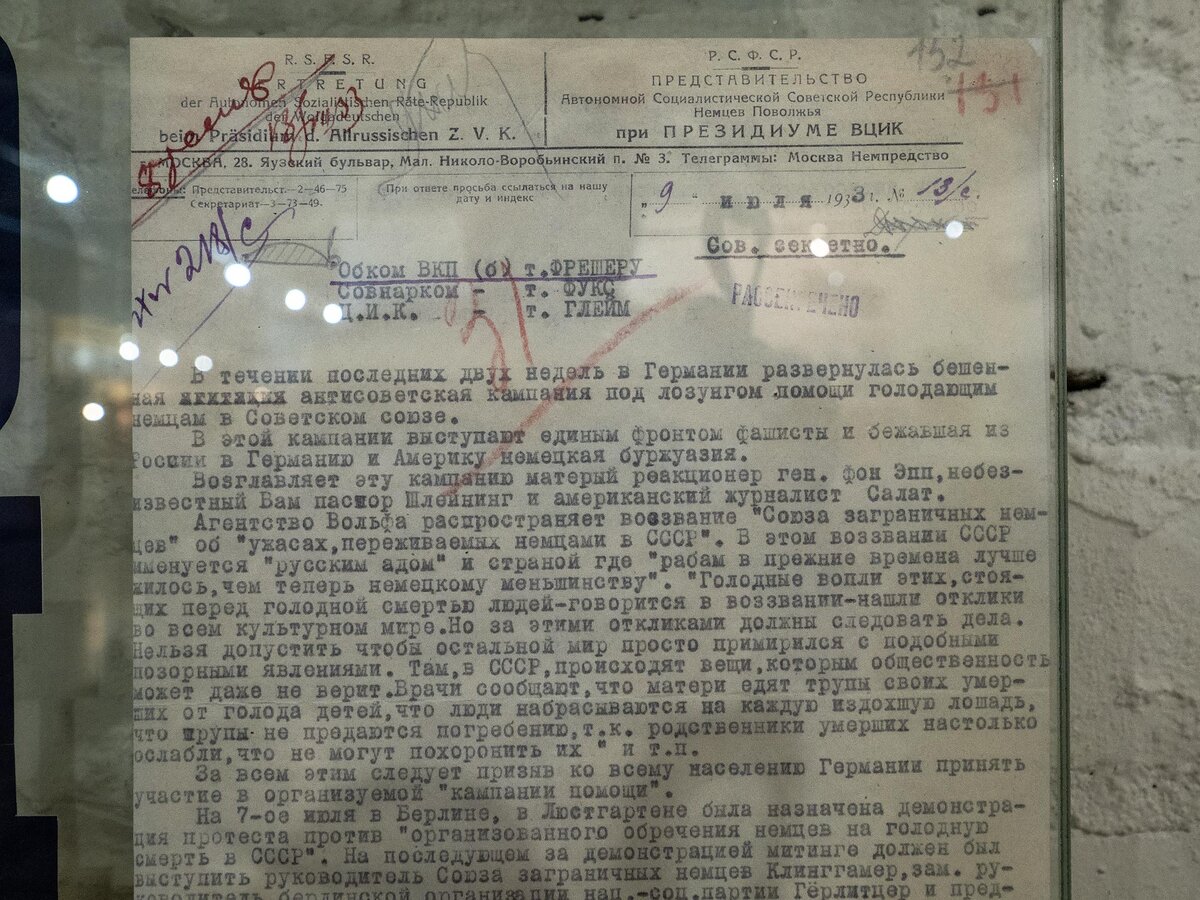 R. S. F. S. R.
VERTRETUNG
der Autonomen Sozialistischen Räte-Republik
der Wolgadeutschen
beim Präsidium d. Allrussischen Z. V. K.
Р. С. Ф. С. Р.
ПРЕДСТАВИТЕЛЬСТВО
Автономной Социалистической Советской Республики
Немцев Поволжья
при ПРЕЗИДИУМЕ ВЦИК
152
151
МОСКВА, 28. Яузский бульвар, Мал. Николо-Воробьинский п. № 3. Телеграммы: Москва Немпредство
Телефоны: Представительст.—2—46—75
Секретариат—3—73—49.
При ответе просьба ссылаться на нашу
дату и индекс
„ 9 " июля 1933 г. № 13/с.
Сов. секретно.
218/с
Обком ВКП (б) т. ФРЕШЕРУ
Совнарком - т. ФУКС
Ц.И.К. - т. ГЛЕЙМ
РАССЕКРЕЧЕНО
В течении последних двух недель в Германии развернулась бешен-
ная антисоветская кампания под лозунгом помощи голодающим
немцам в Советском союзе.
В этой кампании выступают единым фронтом фашисты и бежавшая из
России в Германию и Америку немецкая буржуазия.
Возглавляет эту кампанию матерый реакционер ген. фон Эпп,небез-
известный Вам пастор Шлейнинг и американский журналист Салат.
Агентство Вольфа распространяет воззвание "Союза заграничных нем-
цев" об "ужасах,переживаемых немцами в СССР". В этом воззвании СССР
именуется "русским адом" и страной где "рабам в прежние времена лучше
жилось,чем теперь немецкому меньшинству". "Голодные вопли этих,стоя-
щих перед голодной смертью людей-говорится в воззвании-нашли отклики
во всем культурном мире.Но за этими откликами должны следовать дела.
Нельзя допустить чтобы остальной мир просто примирился с подобными
позорными явлениями. Там,в СССР,происходят вещи,которым общественность
может даже не верит.Врачи сообщают,что матери едят трупы своих умер-
ших от голода детей,что люди набрасываются на каждую издохшую лошадь,
что трупы не предаются погребению,т.к. родственники умерших настолько
ослабли,что не могут похоронить их " и т.п.
За всем этим следует призыв ко всему населению Германии принять
участие в организуемой "кампании помощи".
На 7-ое июля в Берлине, в Люстгартене была назначена демонстра-
ция протеста против "организованного обречения немцев на голодную
смерть в СССР". На последующем за демонстрацией митинге должен был
выступить руководитель Союза заграничных немцев Клинггамер,зам. ру-
ководитель берлинской организации нац.-соц.партии Гёрлитцер и пред-